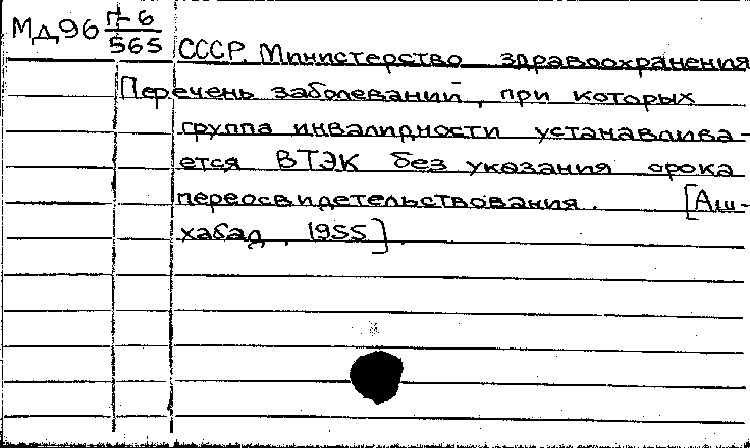 Мд96 П-6
565
СССР. Министерство здравоохранения
Перечень заболеваний, при которых
группа инвалидности устанавлива-
ется ВТЭК без указания срока
переосвидетельствования. [Аш-
хабад, 1955].